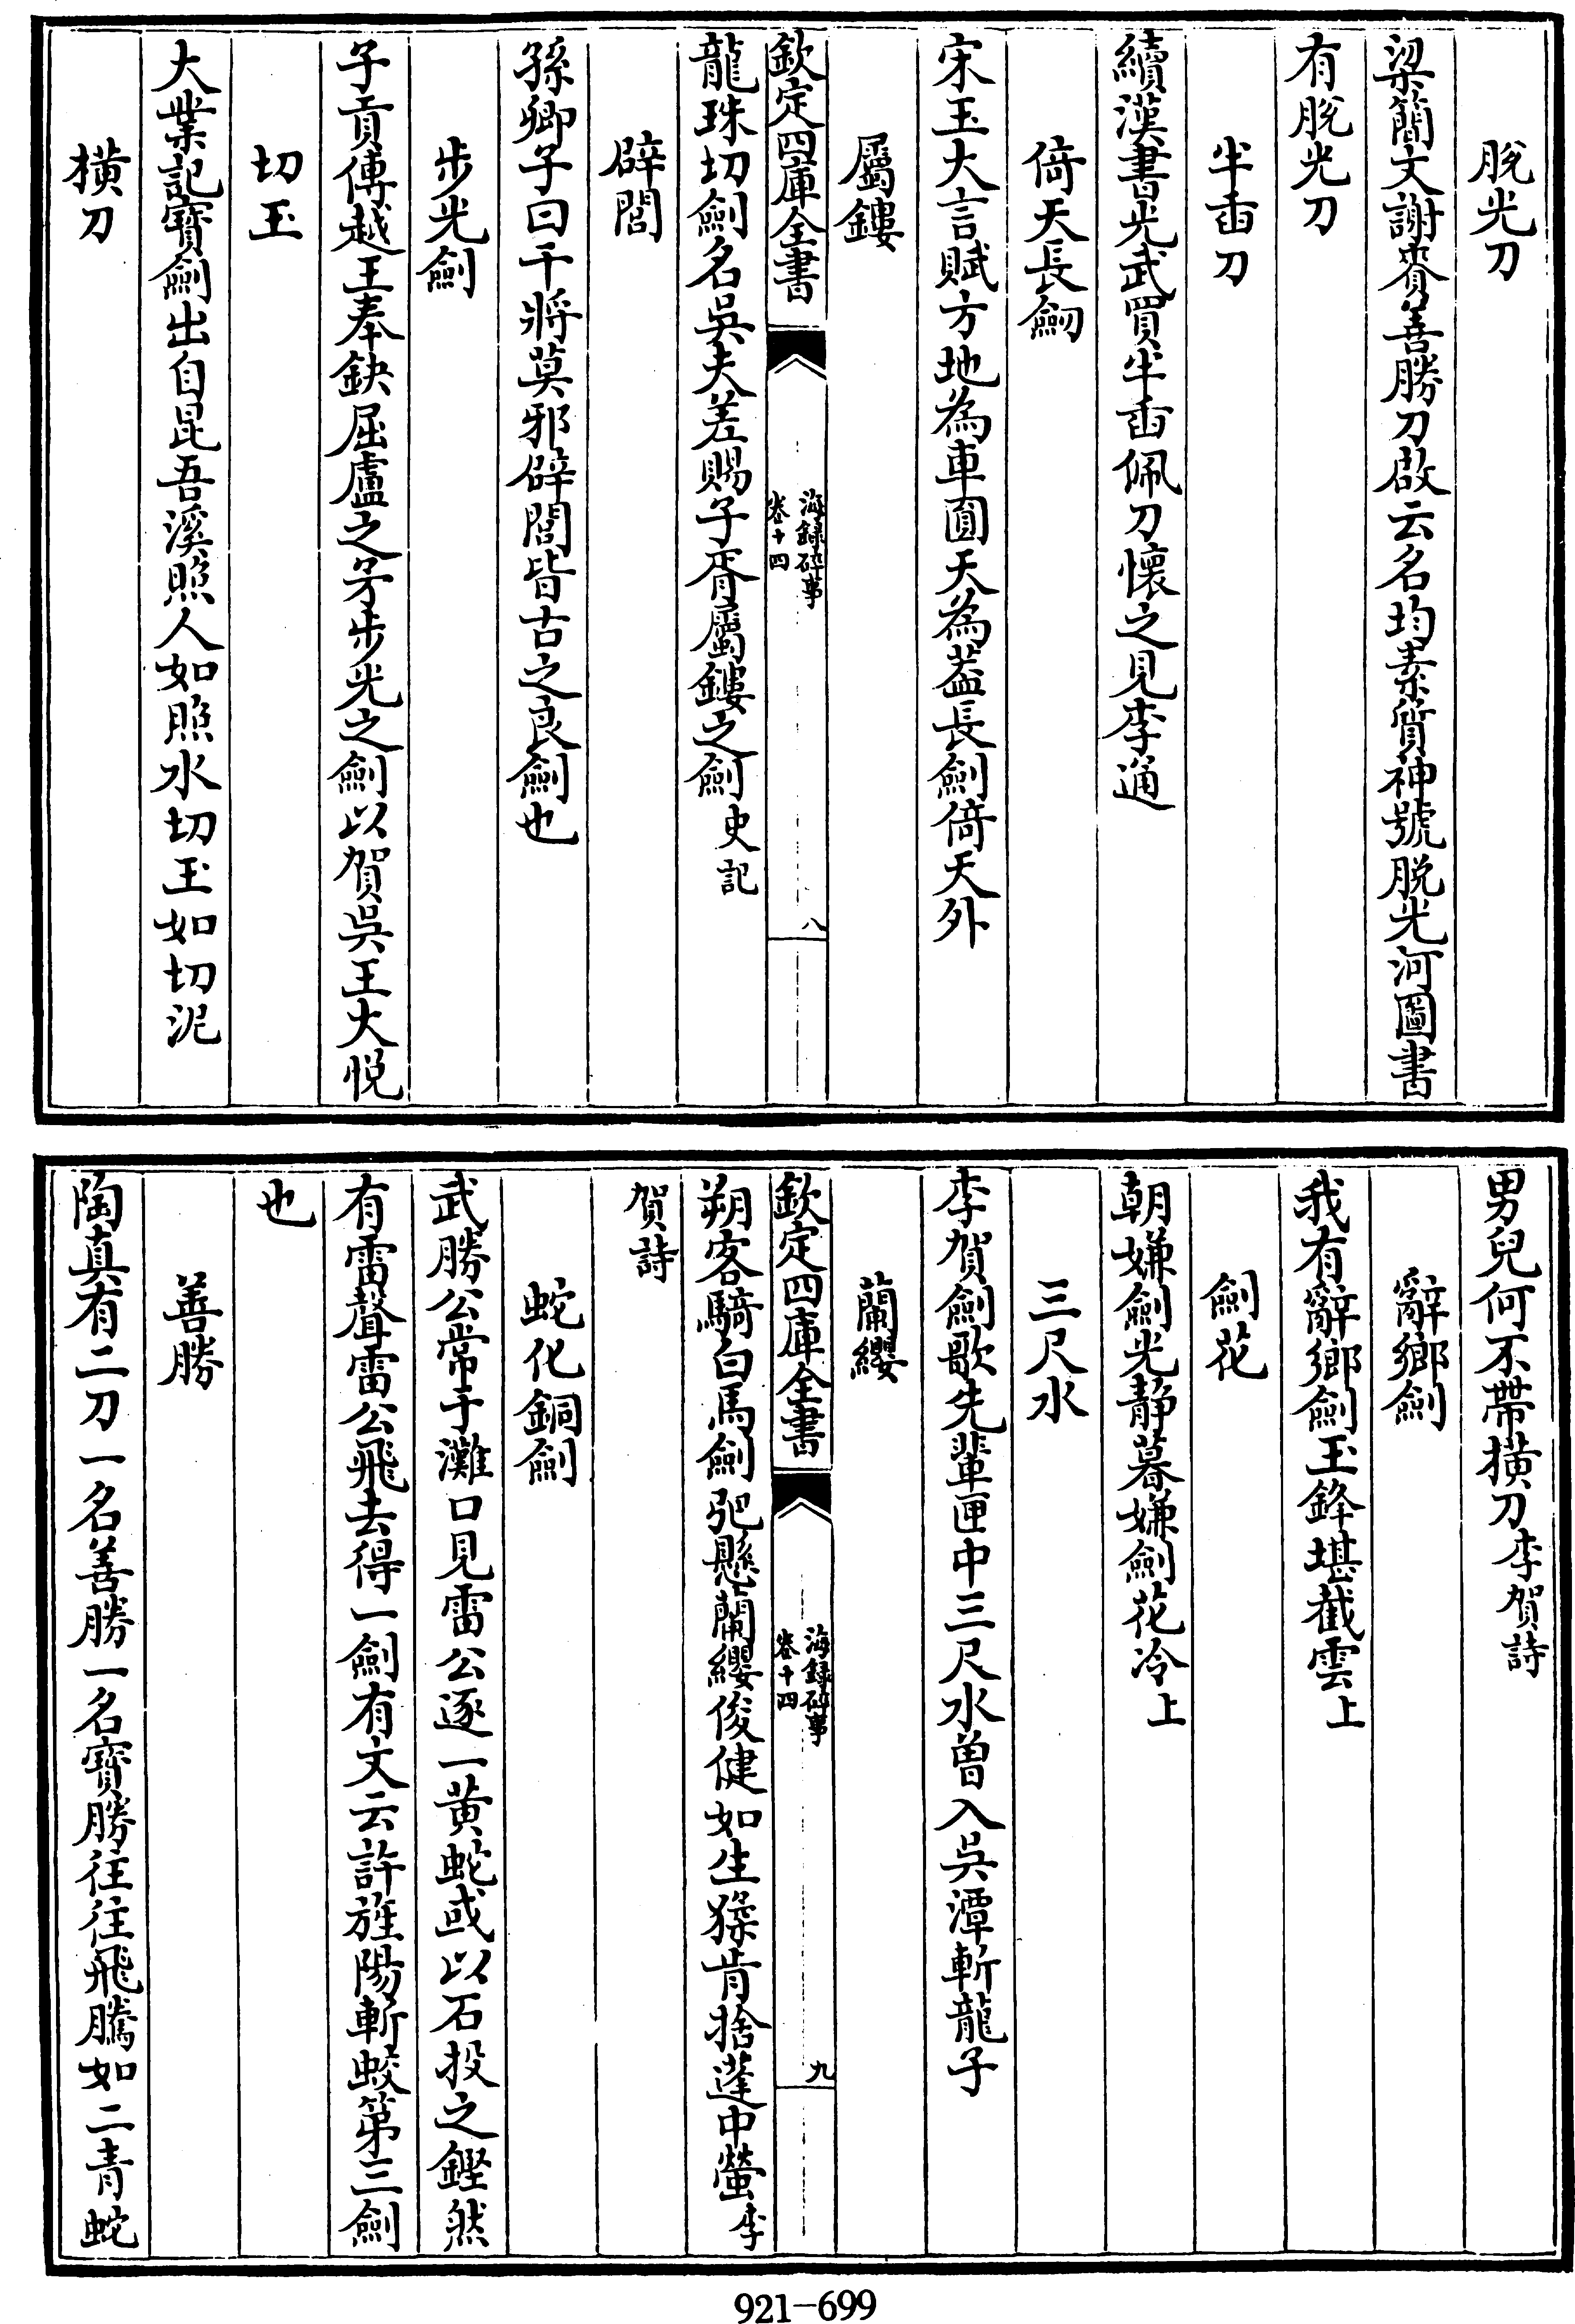 脫光刀
梁簡文謝賚善勝刀啟云名均素質神號脫光河圖書
有脫光刀
半臿刀
續漢書光武買半臿佩刀懷之見李通
倚天長劒
宋玉大言賦方地為車圓天為葢長劍倚天外
屬鏤
欽定四庫全書
海録碎事
卷十四
八
龍珠切劍名吳夫差賜子胥屬鏤之劍史記
辟閭
孫卿子曰干將莫邪辟閭皆古之良劍也
步光劍
子貢傳越王奉鈌屈盧之矛步光之劍以賀吳王大悅
切玉
大業記寶劍出自昆吾溪照人如照水切玉如切泥
橫刀
男兒何不帶橫刀李賀詩
辭鄉劍
我有辭鄉劍玉鋒堪截雲上
劍花
朝嫌劍光静暮嫌劍花冷上
三尺水
李賀劍歌先輩匣中三尺水曽入吳潭斬龍子
蘭纓
欽定四庫全書
海録碎事
卷十四
九
朔客騎白馬劍弝懸蘭纓俊健如生猱肯捨蓬中螢李
賀詩
蛇化銅劍
武勝公常于灘口見雷公逐一黄蛇或以石投之鏗然
有雷聲雷公飛去得一劍有文云許旌陽斬蛟第三劍
也
善勝
陶真有二刀一名善勝一名寶勝往往飛騰如二青蛇
921-699